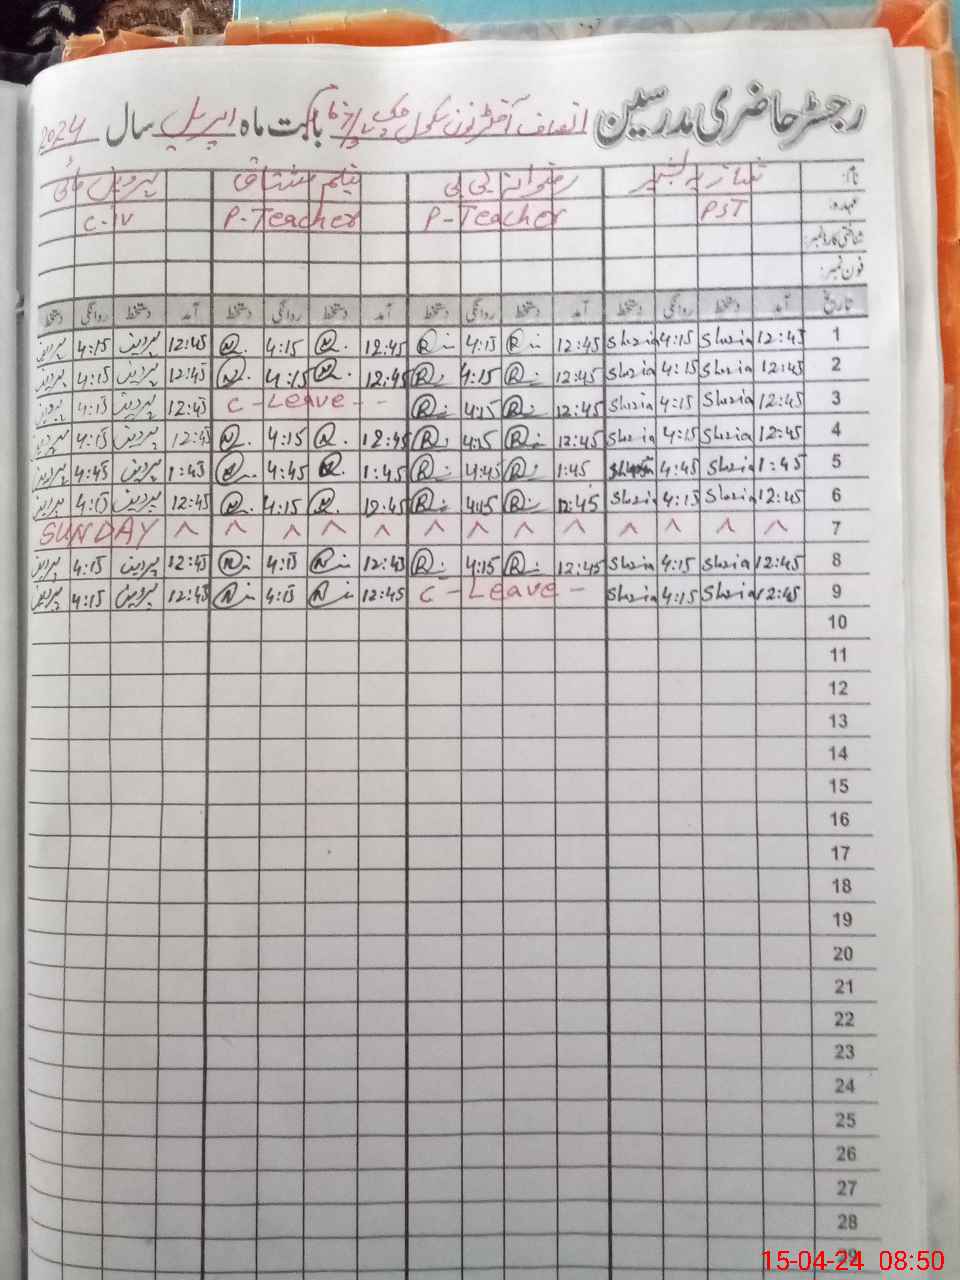 رجسٹر حاضری مدرسین انصاف آفٹر نون سکول چک بابت ماہ اپریل سال 2024
نام: شازیہ بشیر رضوانہ بی بی نیلم مشتاق پروین مائی
عہدہ: PST P-Teacher P-Teacher C-IV
شناختی کارڈ نمبر:
فون نمبر:
تاریخ آمد دستخط روانگی دستخط آمد دستخط روانگی دستخط آمد دستخط روانگی دستخط آمد دستخط روانگی دستخط
1 12:45 Shazia 4:15 Shazia 12:45 R 4:15 R 12:45 N 4:15 N 12:45 پروین 4:15 پروین
2 12:45 Shazia 4:15 Shazia 12:45 R 4:15 R 12:45 N 4:15 N 12:45 پروین 4:15 پروین
3 12:45 Shazia 4:15 Shazia 12:45 R 4:15 R C-Leave-- 12:45 پروین 4:15 پروین
4 12:45 Shazia 4:15 Shazia 12:45 R 4:15 R 12:45 N 4:15 N 12:45 پروین 4:15 پروین
5 1:45 Shazia 4:45 1:45 R 4:45 R 1:45 N 4:45 N 1:45 پروین 4:45 پروین
6 12:45 Shazia 4:15 Shazia 12:45 R 4:15 R 12:45 N 4:15 N 12:45 پروین 4:15 پروین
7 ^ ^ ^ ^ ^ ^ ^ ^ ^ ^ ^ ^ ^ SUNDAY
8 12:45 Shazia 4:15 Shazia 12:45 R 4:15 R 12:45 N 4:15 N 12:45 پروین 4:15 پروین
9 12:45 Shazia 4:15 Shazia C-Leave- 12:45 N 4:15 N 12:45 پروین 4:15 پروین
10
11
12
13
14
15
16
17
18
19
20
21
22
23
24
25
26
27
28
29
15-04-24 08:50